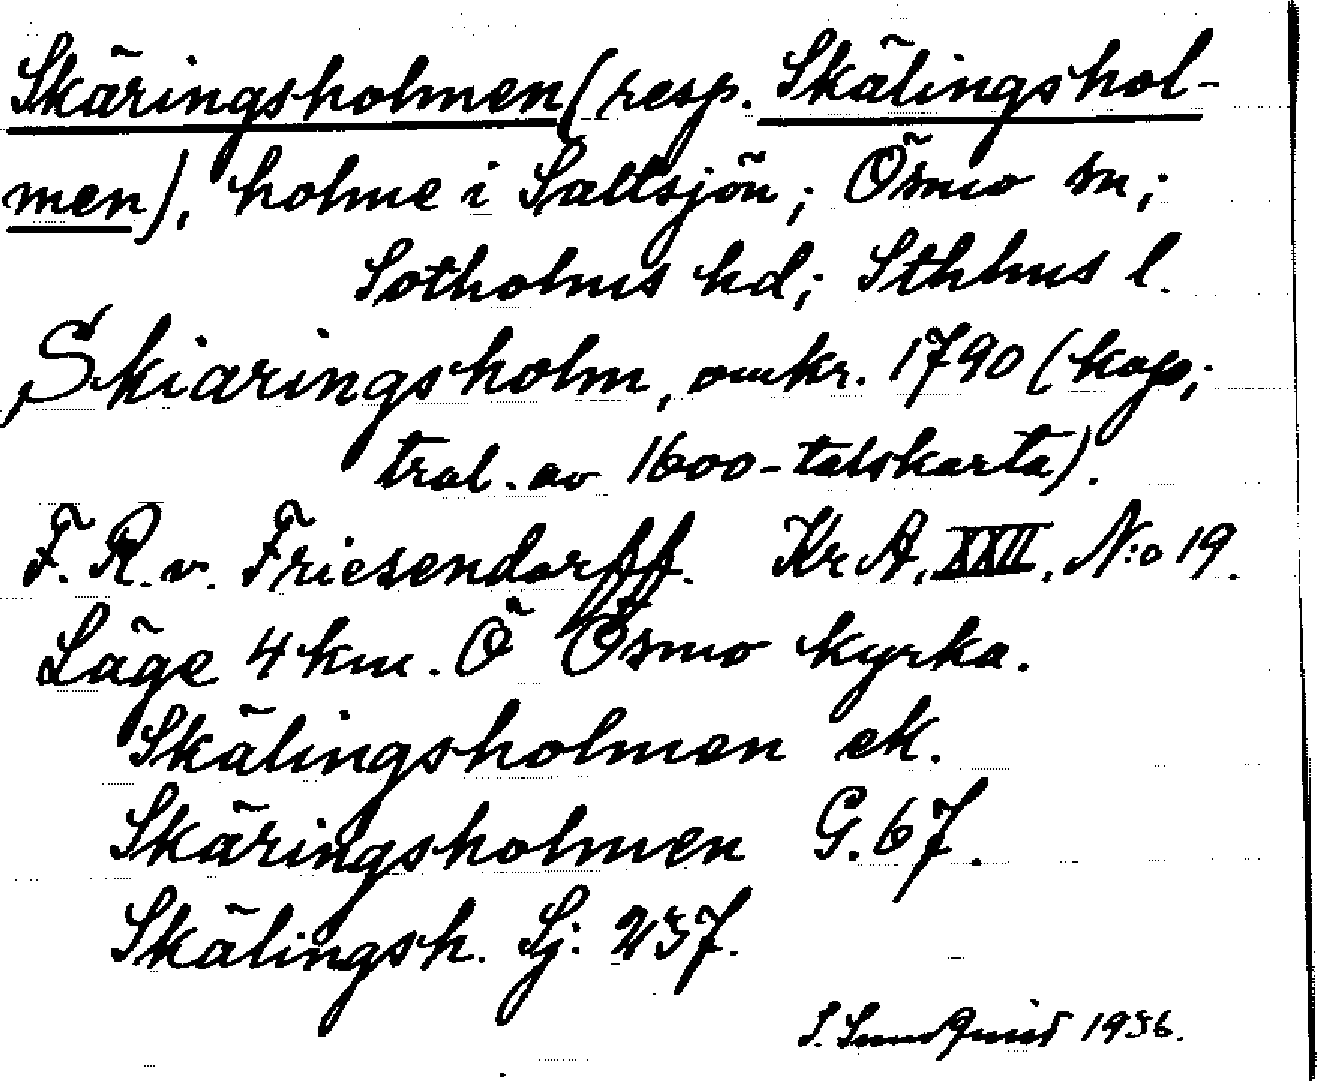 Skäringsholmen (resp. Skälingshol-
men), holme i Saltsjön; Ösmo sn;
Sotholms hd; Sthlms l.
Skiaringsholm, omkr. 1790 (kop;
tral. av 1600-talskarta).
F. R. v. Friesendorff. Kr A, XXII, N:o 19.
Läge 4 km. Ö Ösmo kyrka.
Skälingsholmen ek.
Skäringsholmen G. 67.
Skälingsh. Sj: 237.
S. Lundquist 1936.